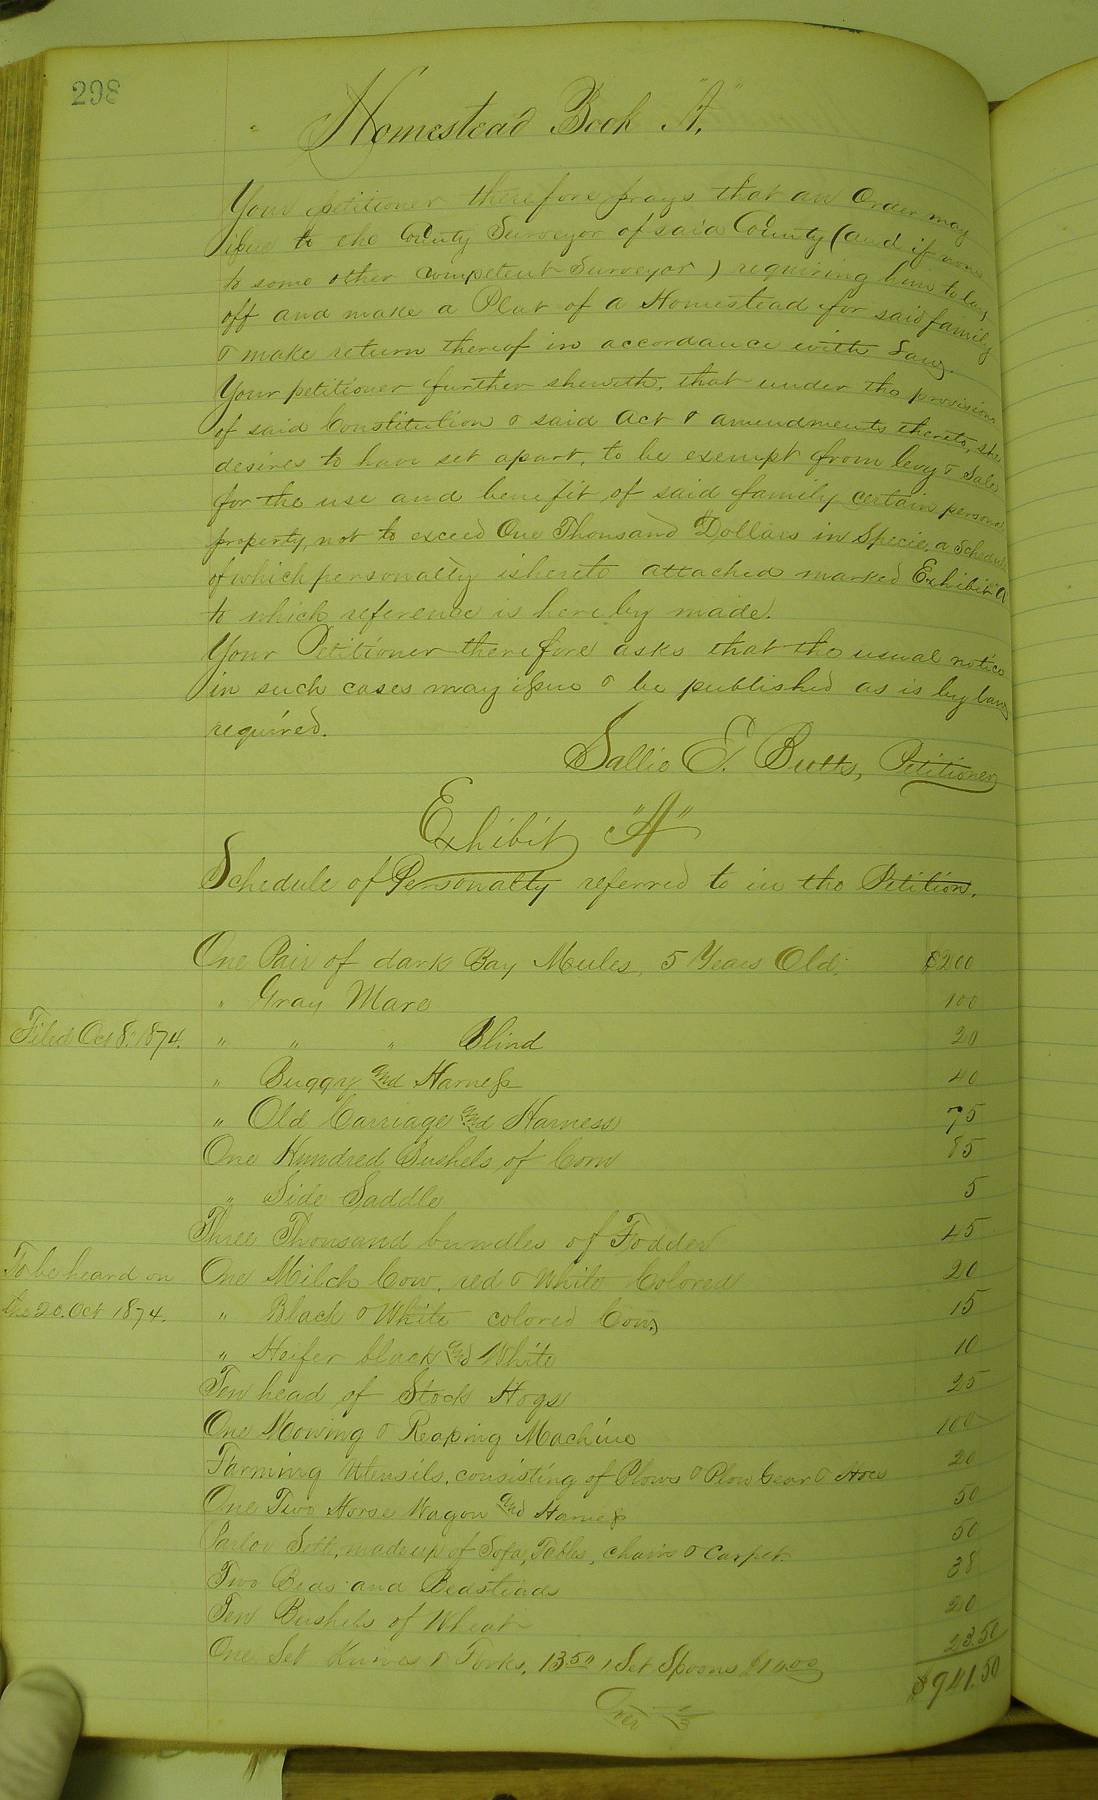 298
Homestead Book "A."
Your petitioner therefore prays that an Order may
issue to the County Surveyor of said County (and if none
to some other competent Surveyor) requiring him to lay
off and make a Plat of a Homestead for said family
& make return thereof in accordance with Law.
Your petitioner further sheweth, that under the provisions
of said Constitution & said Act & amendments thereto, she
desires to have set apart, to be exempt from levy & Sale
for the use and benefit of said family certain personal
property, not to exceed One Thousand Dollars in Specie, a Schedule
of which personalty is hereto attached marked Exhibit "A"
to which reference is hereby made.
Your Petitioner therefore asks that the usual notice
in such cases may issue & be published as is by law
required.
Sallie E. Butts, Petitioner
Exhibit "A"
Schedule of Personalty referred to in the Petition.
One Pair of dark Bay Mules, 5 Years Old. $200
" Gray Mare 100
Filed Oct 8. 1874. " " " Blind 20
" Buggy and Harness 40
" Old Carriage and Harness 75
One Hundred Bushels of Corn 85
" Side Saddle 5
Three Thousand bundles of Fodder 45
To be heard on One Milch Cow, red & White Colored 20
the 20. Oct 1874. " Black & White colored Cow 15
" Heifer black and White 10
Ten head of Stock Hogs 25
One Mowing & Reaping Machine 100
Farming Utensils, consisting of Plows & Plow Gear & Hoes 20
One Two Horse Wagon and Harness 50
Parlor Sett, made up of Sofa, Tables, chairs & Carpet 50
Two Beds and Bedsteads 38
Ten Bushels of Wheat 20
One Set Knives & Forks, 13.50, 1 Set Spoons $10.00 23.50
$941.50
Over